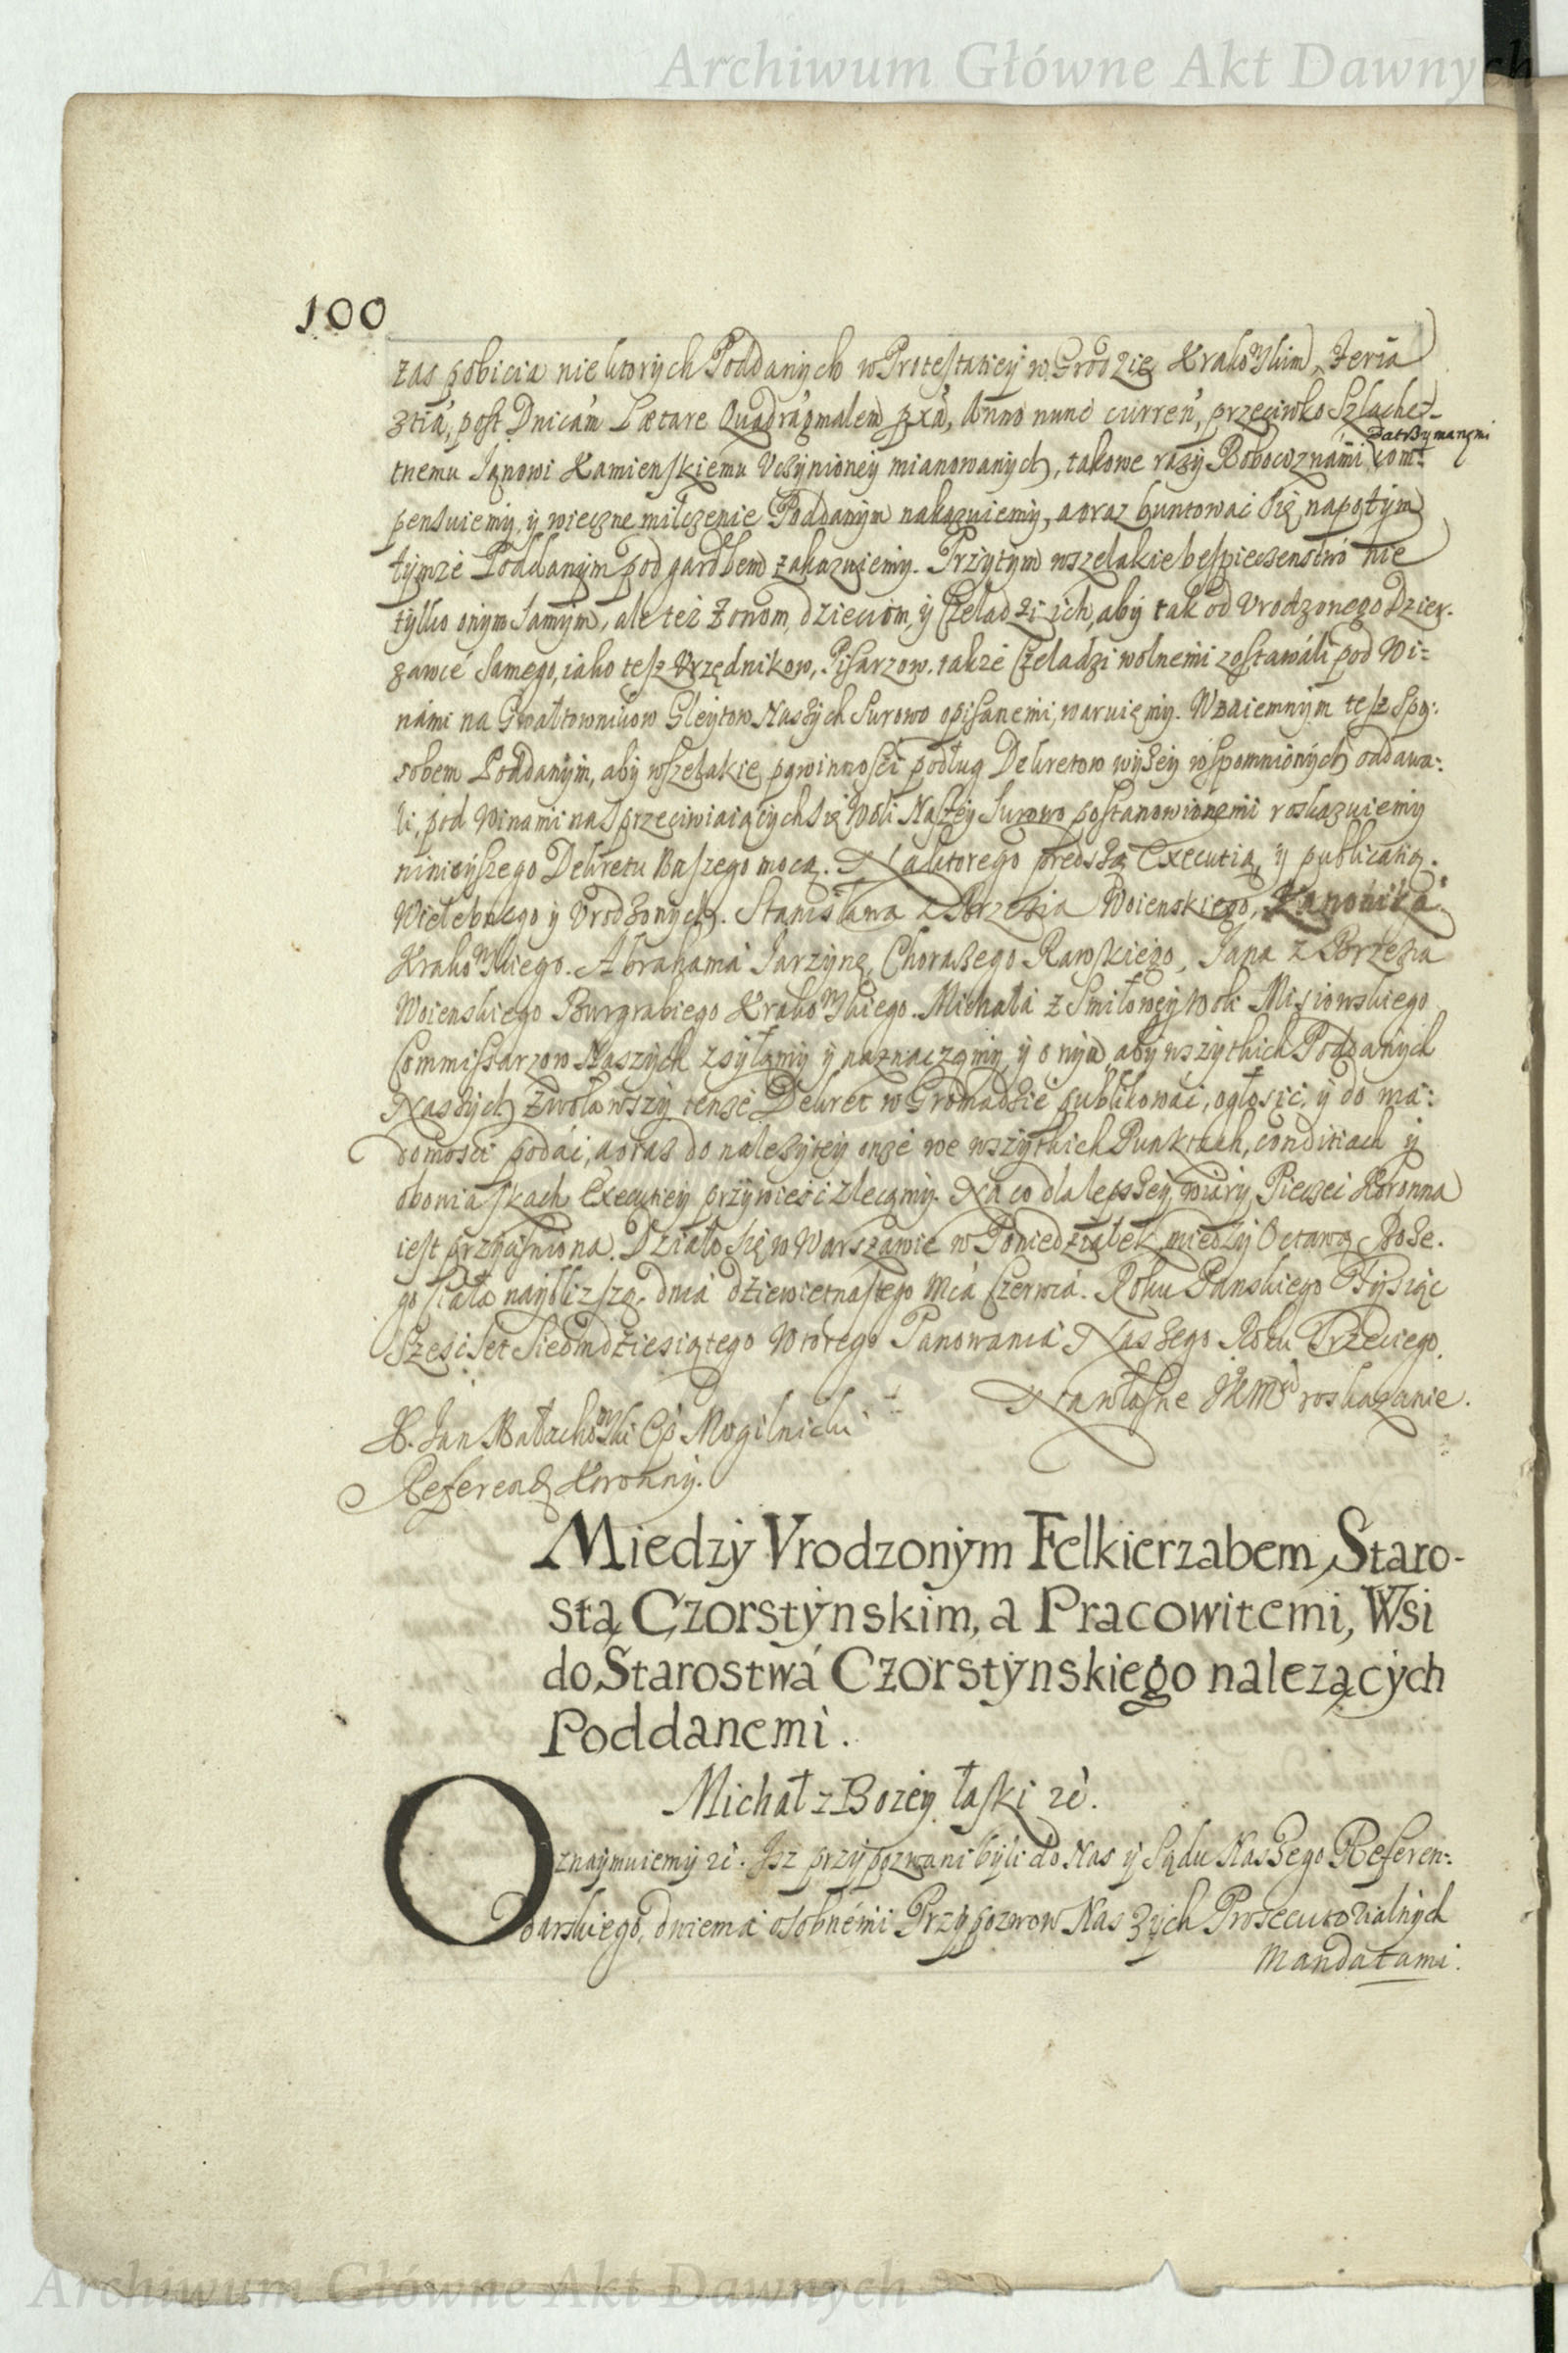 Archiwum Główne Akt Dawnych
100
zas pobicia niektorych Poddanych w Protestatiey w Grodzie Krakowskim, Feria
3tia, post Dnicam Lætare Quadragmalem pxa, Anno nunc curren, przeciwko Szlachet-
tnemu Janowi Kamienskiemu Vczynioney mianowanych, takowe razy Robociznami zatrzymanemi com=
pensuiemy, y wieczne milczenie Poddanym nakazuiemy, a oraz buntowac się napotym
tymze Poddanym pod gardłem zakazuiemy. Przytym wszelakie bespieczenstwo nie
tylko onym samym, ale też Zonom, dzieciom, y Czeladzi ich, aby tak od Vrodzonego Dzier-
zawce samego, iako tesz Vrzędnikow, Pisarzow, takze Czeladzi wolnemi zostawali pod Wi=
nami na Gwałtownikow Gleytow Naszych surowo opisanemi, waruiemy. Wzaiemnym tesz spo:
sobem Poddanym, aby wszelakie powinnosci podług Dekretow wyzey wspomnionych oddawa:
li, pod Winami na sprzeciwiaiących się Woli Naszey surowo postanowionemi roskazuiemy
ninieyszego Dekretu Naszego mocą. Na ktorego predszą Executią, y publicatią.
Wielebnego y Vrodzonych. Stanisława z Brzezia Woienskiego, Kanonika
Krakowskiego. Abrahama Jarzynę, Chorązego Rawskiego, Jana z Brzezia
Woienskiego Burgrabiego Krakowskiego. Michała z Smiłowey Woli Misiowskiego
Commissarzow Naszych zsyłamy y naznaczamy, y onym aby wszytkich Poddanych
Naszych zwoławszy tenze Dekret w Gromadzie publikowac, ogłosic, y do wia:
domosci podac, a oraz do nalezytey onze we wszytkich Punktach, conditiach y
obowiąskach Executiey przywiesc zlecamy. Na co dla lepszey wiary, Pieczec Koronna
iest przycisniona. Działo się w Warszawie w Poniedziałek między Octawą Boze-
go Ciała naybliższą, dnia dziewietnastego Mca Czerwca. Roku Panskiego Tysiąc
Szescset Siedmdziesiątego Wtorego Panowania Naszego Roku Trzeciego.
Na własne JKMsci roskazanie.
X. Jan Małachowski Op Mogilnicki
Referend Koronny.
Miedzy Vrodzonym Felkierzabem, Staro-
stą Czorstynskim, a Pracowitemi, Wsi
do Starostwa Czorstynskiego nalezących
Poddanemi.
Michał z Bozey łaski ze.
Oznaymuiemy ze. Isz przypozwani byli do Nas y Sądu Naszego Referen:
darskiego, dwiema osobnemi Przypozwow Naszych Prosecutorialnych
Mandatami.
Archiwum Główne Akt Dawnych